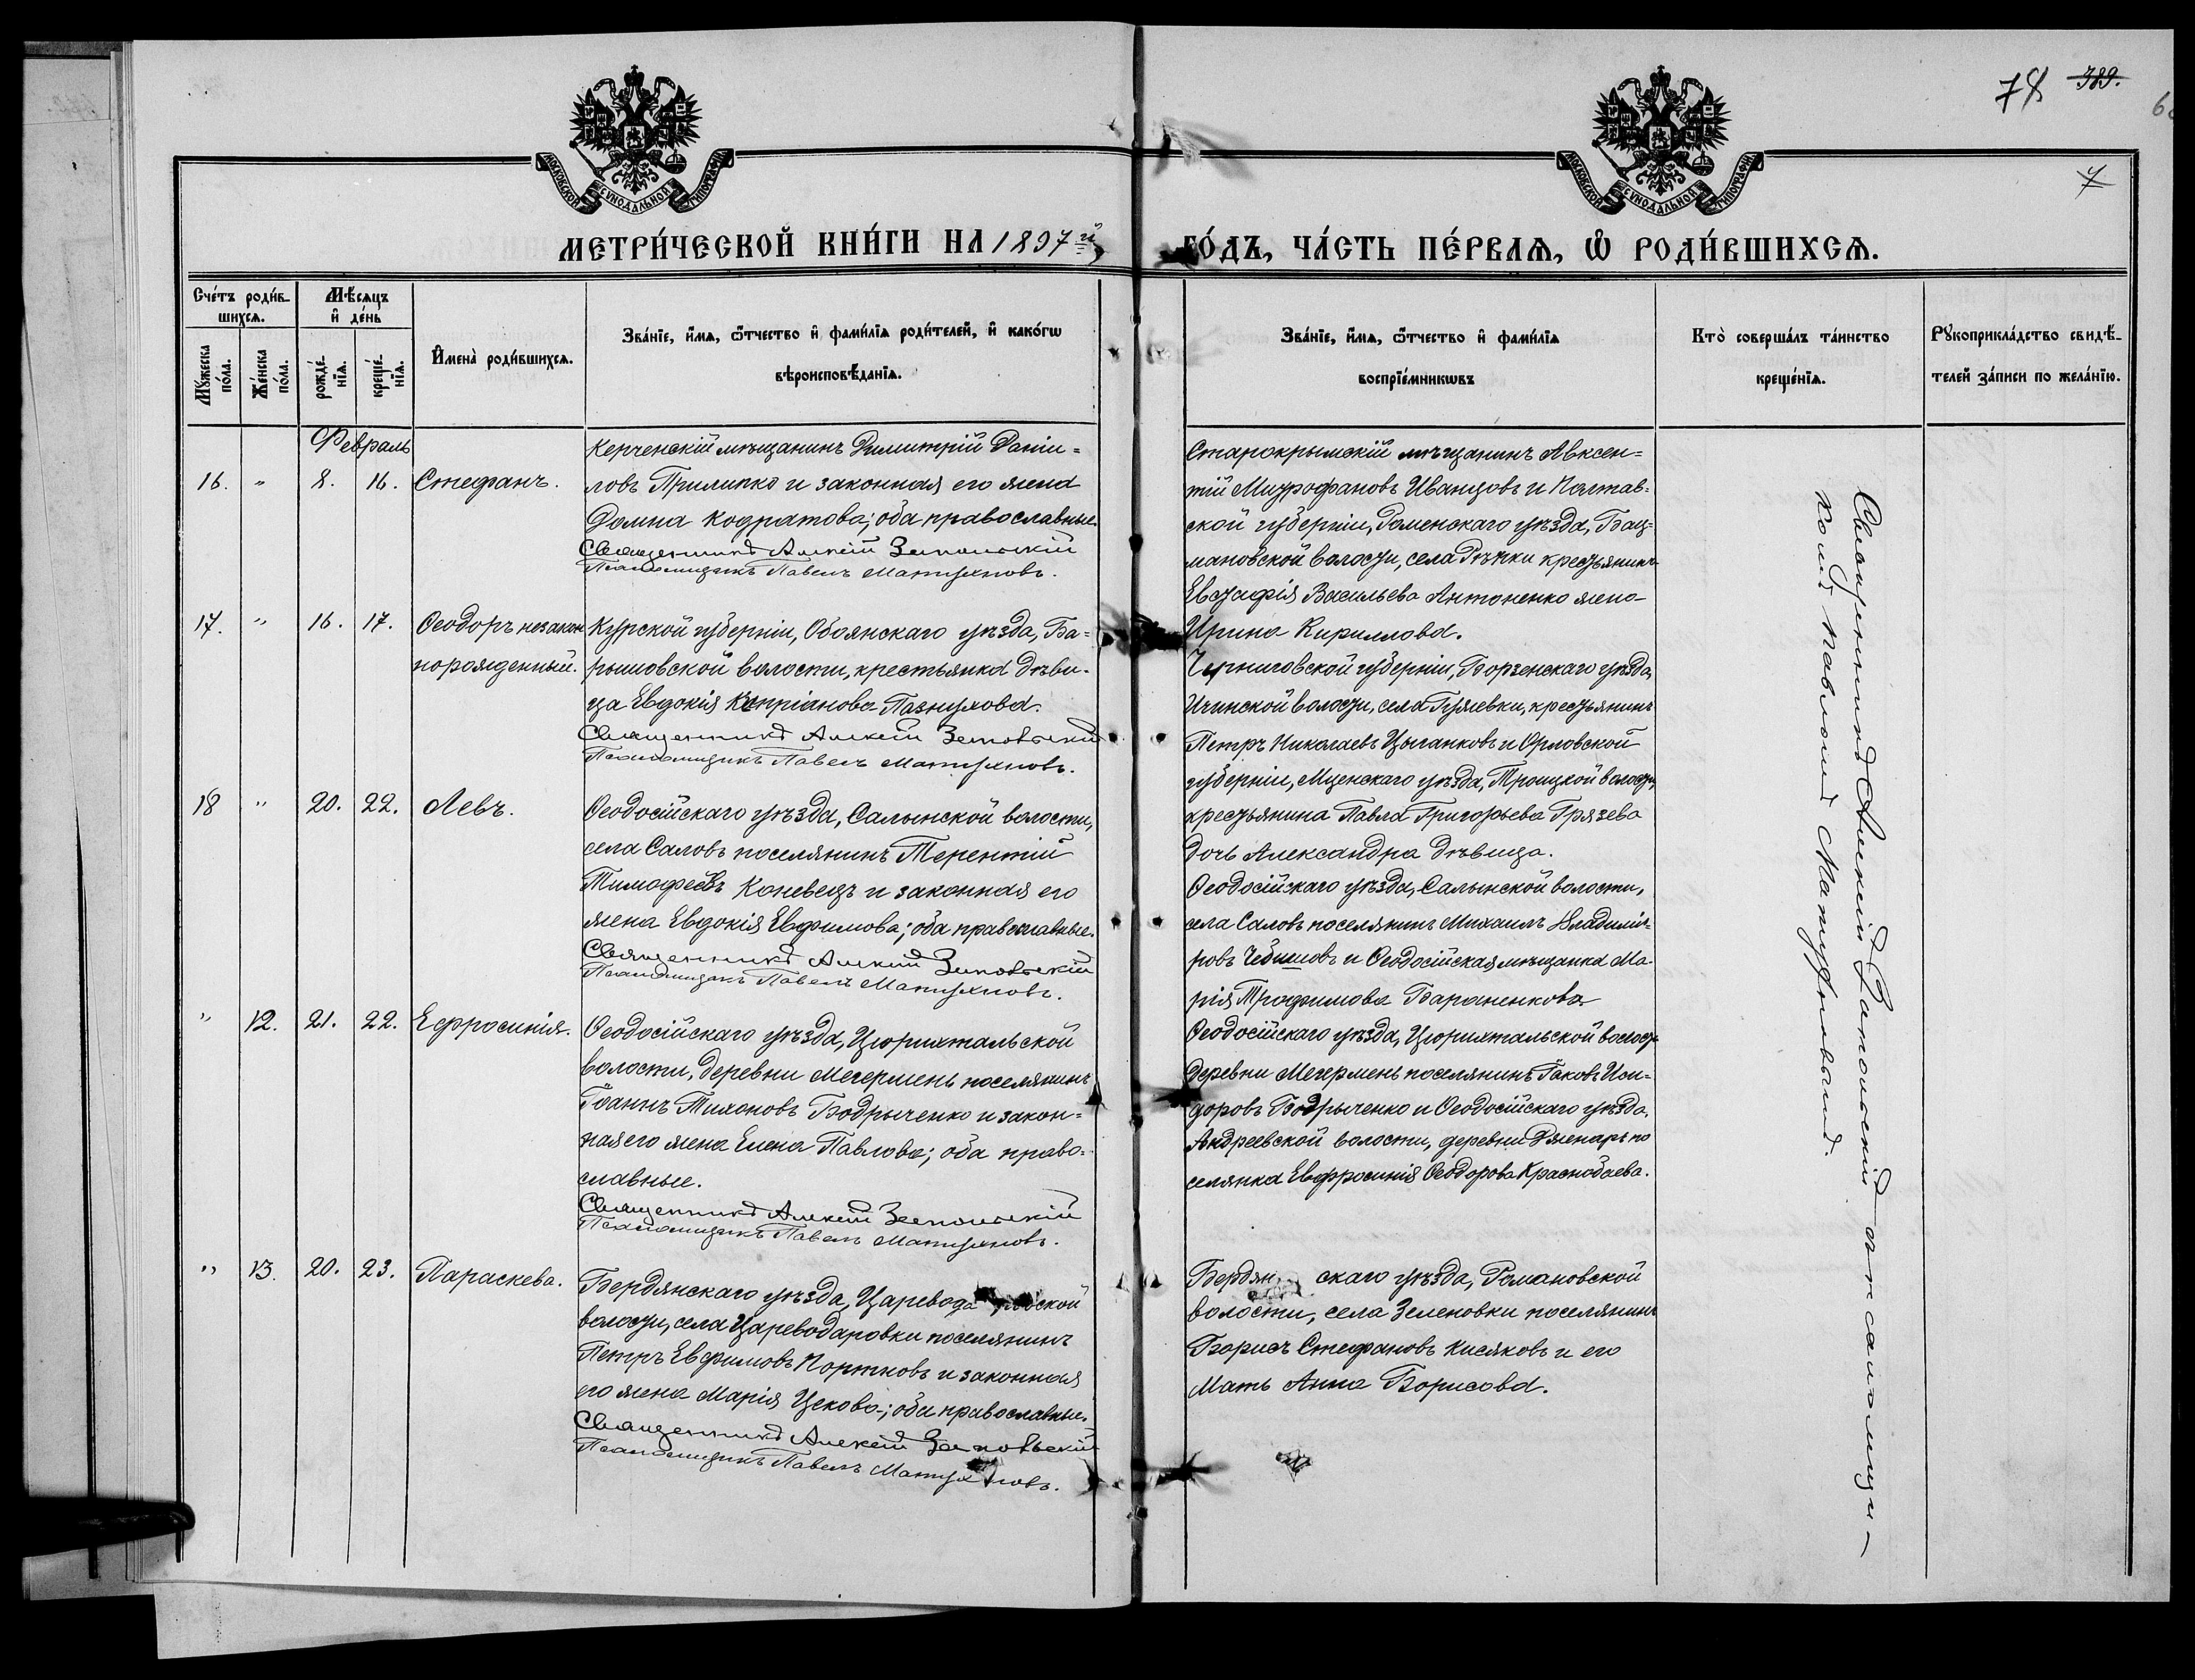 78 389.
7
МОСКОВСКОЙ СѴНОДАЛЬНОЙ ТИПОГРАФІИ
МОСКОВСКОЙ СѴНОДАЛЬНОЙ ТИПОГРАФІИ
МЕТРИ́ЧЕСКОЙ КНИ́ГИ НА 1897й
ГО́ДЪ, ЧА́СТЬ ПЕ́РВАѦ, Ѡ҆ РОДИ́ВШИХСѦ.
Сче́тъ роди́в-
шихсѧ.
Мѣ́сѧцъ
и҆ де́нь
Мꙋ́жеска
по́ла.
Же́нска
по́ла.
рожде́-
нїѧ.
креще́-
нїѧ.
И҆мена̀ роди́вшихсѧ.
Зва́нїе, и҆́мѧ, ѻ҆́тчество и҆ фами́лїѧ роди́телей, и҆ како́гѡ
вѣроисповѣ́данїѧ.
Зва́нїе, и҆́мѧ, ѻ҆́тчество и҆ фами́лїѧ
воспрїе́мникѡвъ
Кто̀ соверша́лъ та́инство
креще́нїѧ.
Рꙋкоприкла́дство свидѣ́-
телей за́писи по жела́нїю.
Февраль
16. " 8. 16. Стефанъ.
Керченскій мѣщанинъ Димитрій Даніи=
ловъ Прилипко и законная его жена
Домна Кодратова; оба православные.
Священникъ Алексій
Псаломщикъ Павелъ Матухновъ.
Старокрымскій мѣщанинъ Авксен=
тій Митрофановъ Иванцовъ и Полтав=
ской губерніи, Роменскаго уѣзда, Бац=
мановской волости, села Рѣчки крестьянинъ
Евстафія Васильева Антоненко жена
Ирина Кириллова.
17. " 16. 17. Ѳеодоръ незакон
норожденный.
Курской губерніи, Обоянскаго уѣзда, Ба=
рышовской волости, крестьянка дѣви=
ца Евдокія Кипріанова Пазнухова.
Священникъ Алексій
Псаломщикъ Павелъ Матухновъ.
Черниговской губерніи, Борзенскаго уѣзда,
Ичинской волости, села Гужевки, крестьянинъ
Петръ Николаевъ Цыганковъ и Орловской
губерніи, Мценскаго уѣзда, Троицкой волости,
крестьянина Павла Григорьева Грязева
дочь Александра дѣвица.
18 " 20. 22. Левъ.
Ѳеодосійскаго уѣзда, Салынской волости,
села Саловъ поселянинъ Терентій
Тимофеевъ Коневецъ и законная его
жена Евдокія Евфимова; оба православные.
Священникъ Алексій
Псаломщикъ Павелъ Матухновъ.
Ѳеодосійскаго уѣзда, Салынской волости,
села Саловъ поселянинъ Михаилъ Владимі=
ровъ и Ѳеодосійская мѣщанка Ма=
рія Трофимова Бараненкова
" 12. 21. 22. Ефросинія.
Ѳеодосійскаго уѣзда, Цюрихтальской
волости, деревни Мегермень поселянинъ
Іоаннъ Тихоновъ Бодрыченко и закон=
ная его жена Елена Павлова; оба право=
славные.
Священникъ Алексій
Псаломщикъ Павелъ Матухновъ.
Ѳеодосійскаго уѣзда, Цюрихтальской волости
деревни Мегермень поселянинъ Іаковъ Иси=
доровъ Бодрыченко и Ѳеодосійскаго уѣзда,
Андреевской волости, деревни Джепаръ по
селянка Евфросинія Ѳеодорова Краснобаева.
" 13. 20. 23. Параскева.
Бердянскаго уѣзда, Царевода ровской
волости, села Цареводаровки поселянинъ
Петръ Евфимовъ Портновъ и законная
его жена Марія Цекова; оба православные.
Священникъ Алексій
Псаломщикъ Павелъ Матухновъ.
Бердян скаго уѣзда, Романовской
волости, села Зеленовки поселянинъ
Борисъ Стефановъ Кисяковъ и его
Мать Анна Борисова.
Священникъ Алексій съ псаломщи-
комъ Павломъ Матухновымъ.